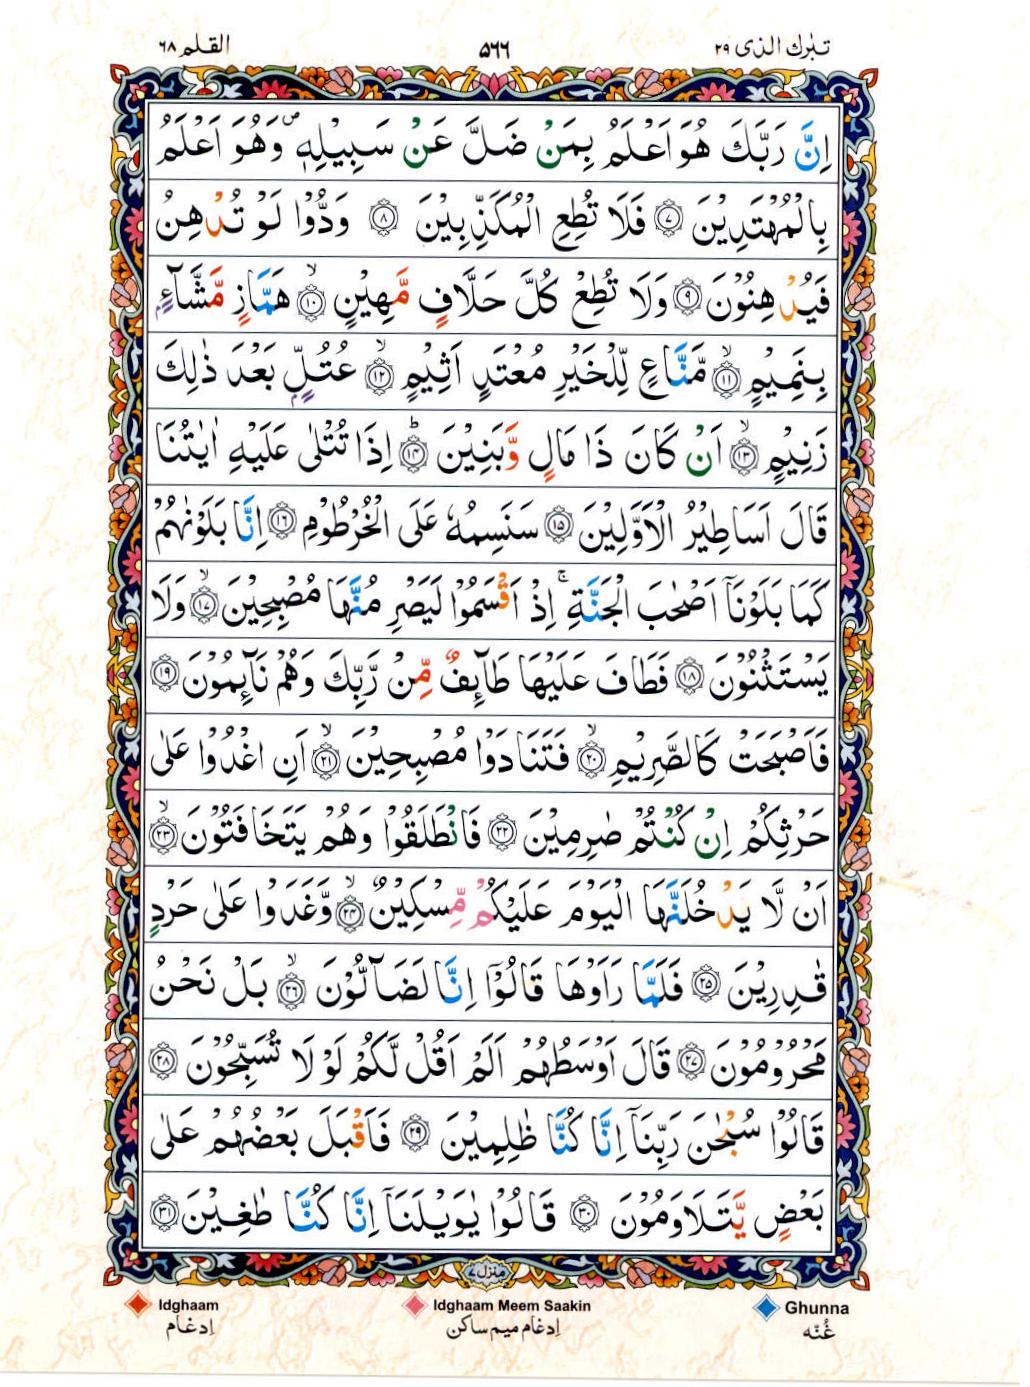 تبٰرك الذى ٢٩ ٥٦٦ القلم ٦٨
اِنَّ رَبَّكَ هُوَ اَعْلَمُ بِمَنْ ضَلَّ عَنْ سَبِيْلِهٖ ۪ وَهُوَ اَعْلَمُ
بِالْمُهْتَدِيْنَ ﴿٧﴾ فَلَا تُطِعِ الْمُكَذِّبِيْنَ ﴿٨﴾ وَدُّوْا لَوْ تُدْهِنُ
فَيُدْهِنُوْنَ ﴿٩﴾ وَلَا تُطِعْ كُلَّ حَلَّافٍ مَّهِيْنٍ ۙ﴿١٠﴾ هَمَّازٍ مَّشَّآءٍۢ
بِنَمِيْمٍ ۙ﴿١١﴾ مَّنَّاعٍ لِّلْخَيْرِ مُعْتَدٍ اَثِيْمٍ ۙ﴿١٢﴾ عُتُلٍّۢ بَعْدَ ذٰلِكَ
زَنِيْمٍ ۙ﴿١٣﴾ اَنْ كَانَ ذَا مَالٍ وَّبَنِيْنَ ؕ﴿١٤﴾ اِذَا تُتْلٰى عَلَيْهِ اٰيٰتُنَا
قَالَ اَسَاطِيْرُ الْاَوَّلِيْنَ ﴿١٥﴾ سَنَسِمُهٗ عَلَى الْخُرْطُوْمِ ﴿١٦﴾ اِنَّا بَلَوْنٰهُمْ
كَمَا بَلَوْنَآ اَصْحٰبَ الْجَنَّةِ ۚ اِذْ اَقْسَمُوْا لَيَصْرِمُنَّهَا مُصْبِحِيْنَ ۙ﴿١٧﴾ وَلَا
يَسْتَثْنُوْنَ ﴿١٨﴾ فَطَافَ عَلَيْهَا طَآئِفٌ مِّنْ رَّبِّكَ وَهُمْ نَآئِمُوْنَ ﴿١٩﴾
فَاَصْبَحَتْ كَالصَّرِيْمِ ۙ﴿٢٠﴾ فَتَنَادَوْا مُصْبِحِيْنَ ۙ﴿٢١﴾ اَنِ اغْدُوْا عَلٰى
حَرْثِكُمْ اِنْ كُنْتُمْ صٰرِمِيْنَ ﴿٢٢﴾ فَانْطَلَقُوْا وَهُمْ يَتَخَافَتُوْنَ ۙ﴿٢٣﴾
اَنْ لَّا يَدْخُلَنَّهَا الْيَوْمَ عَلَيْكُمْ مِّسْكِيْنٌ ۙ﴿٢٤﴾ وَّغَدَوْا عَلٰى حَرْدٍ
قٰدِرِيْنَ ﴿٢٥﴾ فَلَمَّا رَاَوْهَا قَالُوْٓا اِنَّا لَضَآلُّوْنَ ۙ﴿٢٦﴾ بَلْ نَحْنُ
مَحْرُوْمُوْنَ ﴿٢٧﴾ قَالَ اَوْسَطُهُمْ اَلَمْ اَقُلْ لَّكُمْ لَوْ لَا تُسَبِّحُوْنَ ﴿٢٨﴾
قَالُوْا سُبْحٰنَ رَبِّنَآ اِنَّا كُنَّا ظٰلِمِيْنَ ﴿٢٩﴾ فَاَقْبَلَ بَعْضُهُمْ عَلٰى
بَعْضٍ يَّتَلَاوَمُوْنَ ﴿٣٠﴾ قَالُوْا يٰوَيْلَنَآ اِنَّا كُنَّا طٰغِيْنَ ﴿٣١﴾
منزل ٧
Idghaam Idghaam Meem Saakin Ghunna
اِدغام اِدغام میم ساکن غُنّه